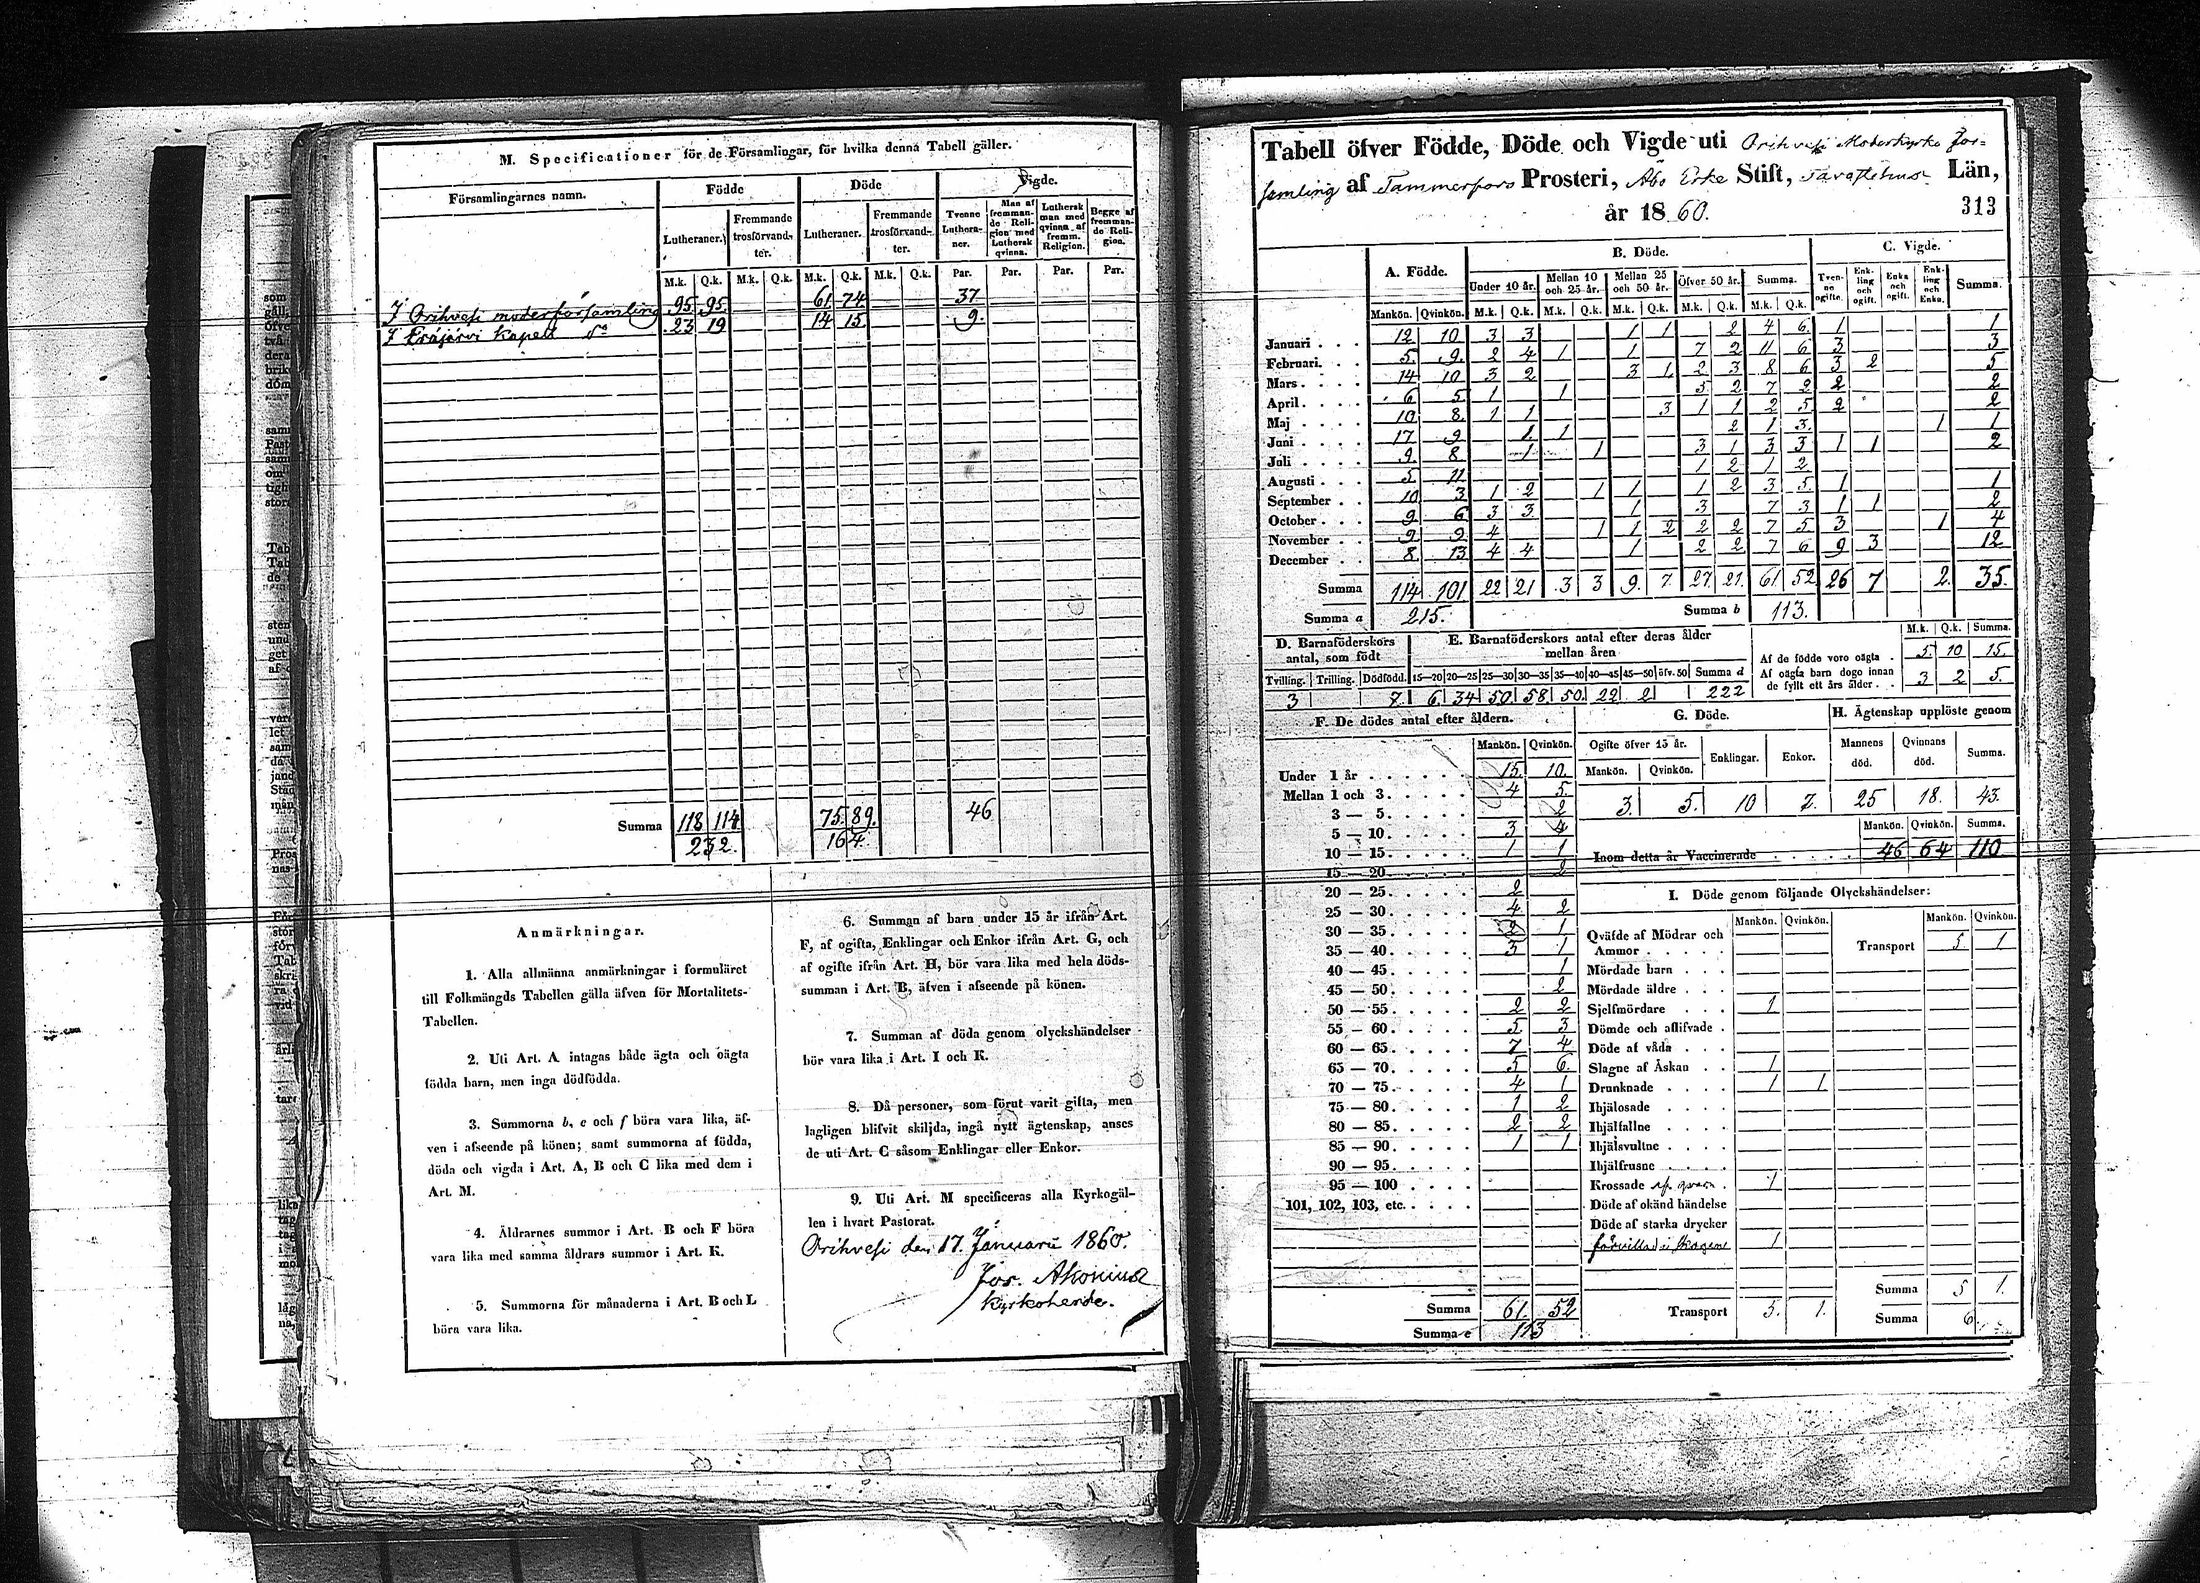 M. Specificationer för de Församlingar, för hvilka denna Tabell gäller.
Församlingarnes namn. Födde Döde Vigde.
Lutheraner. Fremmande trosförvandter. Lutheraner. Fremmande trosförvandter. Tvenne Lutheraner. Man af fremmande Religion med Luthersk qvinna. Luthersk man med qvinna af fremm. Religion. Begge af fremmande Religion.
M.k. Q.k. M.k. Q.k. M.k. Q.k. M.k. Q.k. Par. Par. Par. Par.
I Orihvesi moderförsamling 95 95 61 74 37
I Eräjärvi Kapell do 23 19 14 15 9.
Summa 118 114 75. 89. 46
232. 164.
Anmärkningar.
1. Alla allmänna anmärkningar i formuläret
till Folkmängds Tabellen gälla äfven för Mortalitets-
Tabellen.
2. Uti Art. A intagas både ägta och oägta
födda barn, men inga dödfödda.
3. Summorna b, c och f böra vara lika, äf-
ven i afseende på könen; samt summorna af födda,
döda och vigda i Art. A, B och C lika med dem i
Art. M.
4. Åldrarnes summor i Art. B och F böra
vara lika med samma åldrars summor i Art. K.
5. Summorna för månaderna i Art. B och L
böra vara lika.
6. Summan af barn under 15 år ifrån Art.
F, af ogifta, Enklingar och Enkor ifrån Art. G, och
af ogifte ifrån Art. H, bör vara lika med hela döds-
summan i Art. B, äfven i afseende på könen.
7. Summan af döda genom olyckshändelser
bör vara lika i Art. I och K.
8. Då personer, som förut varit gifta, men
lagligen blifvit skiljda, ingå nytt ägtenskap, anses
de uti Art. C såsom Enklingar eller Enkor.
9. Uti Art. M specificeras alla Kyrkogäl-
len i hvart Pastorat.
Orihvesi den 17. Januarii 1860.
Jos. Akonius
Kyrkoherde.
Tabell öfver Födde, Döde och Vigde uti Orihvesi Moderkyrko För-
samling af Tammerfors Prosteri, Åbo Erke Stift, Tavastehus Län,
år 1860.
313
A. Födde. B. Döde. C. Vigde.
Under 10 år. Mellan 10 och 25 år. Mellan 25 och 50 år. Öfver 50 år. Summa. Tvenne ogifte. Enkling och ogift. Enka och ogift. Enkling och Enka. Summa.
Mankön. Qvinkön. M.k. Q.k. M.k. Q.k. M.k. Q.k. M.k. Q.k. M.k. Q.k.
Januari . . . 12 10 3 3 1 1 2 4 6 1 1
Februari. . . 5 9 2 4 1 1 7 2 11 6 3 3
Mars . . . . 14 10 3 2 3 1 2 3 8 6 3 2 5
April . . . . 6 5 1 1 5 2 7 2 2 2
Maj . . . . 10 8 1 1 3 1 1 2 5 2 2
Juni . . . . 17 9 1 1 2 1 3 1 1
Juli . . . . 9 8 1 1 3 1 3 3 1 1 2
Augusti . . . 5 11 1 2 1 2
September . . 10 3 1 2 1 1 1 2 3 5 1 1
October . . . 9 6 3 3 1 3 7 3 1 1 2
November . . 9 9 4 1 1 2 2 2 7 5 3 1 4
December . . 8 13 4 4 1 2 2 7 6 9 3 12
Summa 114 101 22 21 3 3 9 7 27 21 61 52 26 7 2 35.
Summa a 215. Summa b 113.
D. Barnaföderskors antal, som födt
E. Barnaföderskors antal efter deras ålder mellan åren
Tvilling. Trilling. Dödfödd. 15—20 20—25 25—30 30—35 35—40 40—45 45—50 öfv. 50 Summa d
3 7. 6 34 50 58 50 22 2 222
M.k. Q.k. Summa.
Af de födde voro oägta . 5. 10 15.
Af oägta barn dogo innan
de fyllt ett års ålder . . 3 2 5.
F. De dödes antal efter åldern.
Mankön. Qvinkön.
Under 1 år 15 10.
Mellan 1 och 3 4 5.
3 — 5 2
5 — 10 3 4
10 — 15 1 1
15 — 20 2
20 — 25 2
25 — 30 4 2
30 — 35 2 1
35 — 40 3 1
40 — 45 1
45 — 50 2
50 — 55 2 2
55 — 60 5 3
60 — 65 7 4
65 — 70 5 6
70 — 75 4 1
75 — 80 1 2
80 — 85 2 2
85 — 90 1 1
90 — 95
95 — 100
101, 102, 103, etc.
Summa 61. 52
Summa c 113
G. Döde.
Ogifte öfver 15 år. Enklingar. Enkor.
Mankön. Qvinkön.
3. 5. 10 7.
H. Ägtenskap upplöste genom
Mannens död. Qvinnans död. Summa.
25 18. 43.
Mankön. Qvinkön. Summa.
Inom detta år Vaccinerade 46 64 110
I. Döde genom följande Olyckshändelser:
Mankön. Qvinkön. Mankön. Qvinkön.
Qväfde af Mödrar och
Ammor . . . . . Transport 5 1
Mördade barn . . .
Mördade äldre . . .
Sjelfmördare . . . 1
Dömde och aflifvade .
Döde af våda . . .
Slagne af Åskan . . 1
Drunknade . . . . 1 1
Ihjälosade . . . .
Ihjälfallne . . . .
Ihjälsvultne . . . .
Ihjälfrusne . . . .
Krossade af qvarn . 1
Döde af okänd händelse
Döde af starka drycker
förvillad i skogen 1
Summa 5 1.
Transport 5. 1. Summa 6.